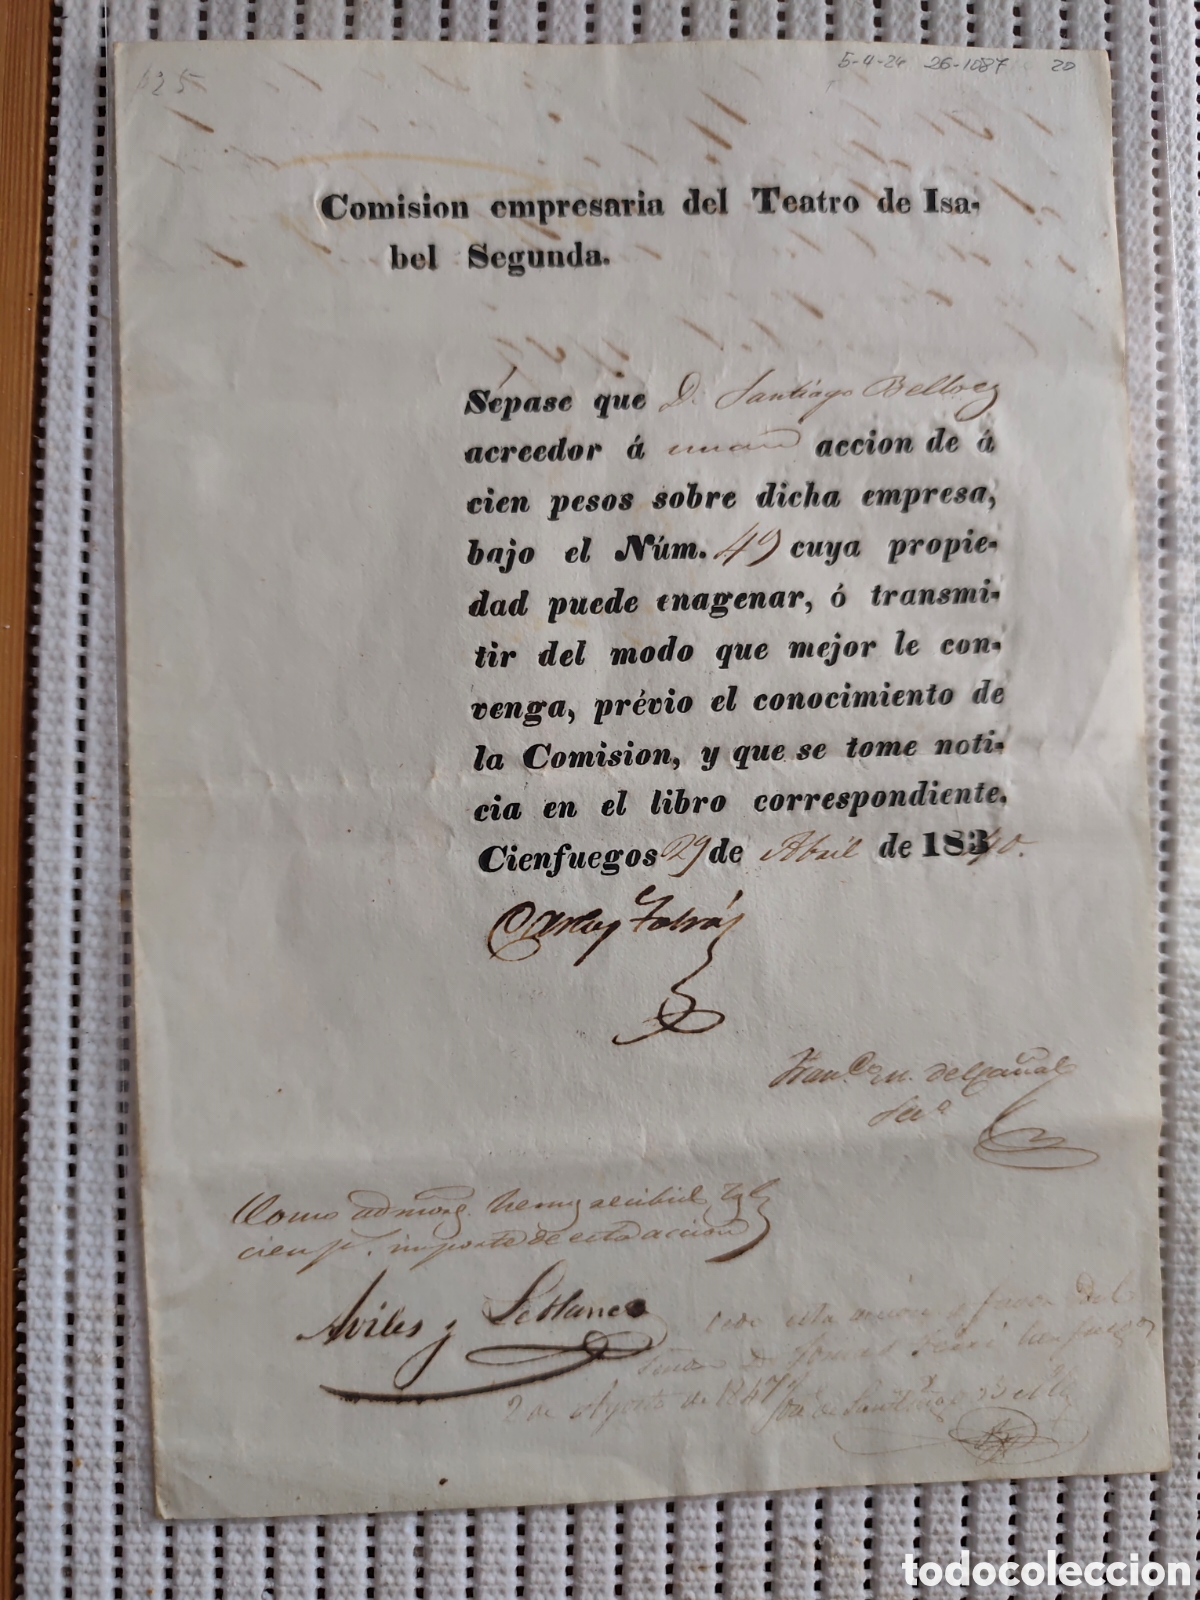 625
5-4-24 26-1087 20
Comision empresaria del Teatro de Isa-
bel Segunda.
Sépase que D. Santiago Belloc es
acreedor á una accion de á
cien pesos sobre dicha empresa,
bajo el Núm. 49 cuya propie-
dad puede enagenar, ó transmi-
tir del modo que mejor le con-
venga, prévio el conocimiento de
la Comision, y que se tome noti-
cia en el libro correspondiente.
Cienfuegos 29 de Abril de 1840.
Carlos
Franco. del Cañal
Seco
Como hemos recibido
cien ps. importe de esta accion
Aviles y Leblanc
Cedo esta accion a favor del
Señor D. Tomas Terri Cienfuegos
2 de Agosto de 1847
todocoleccion